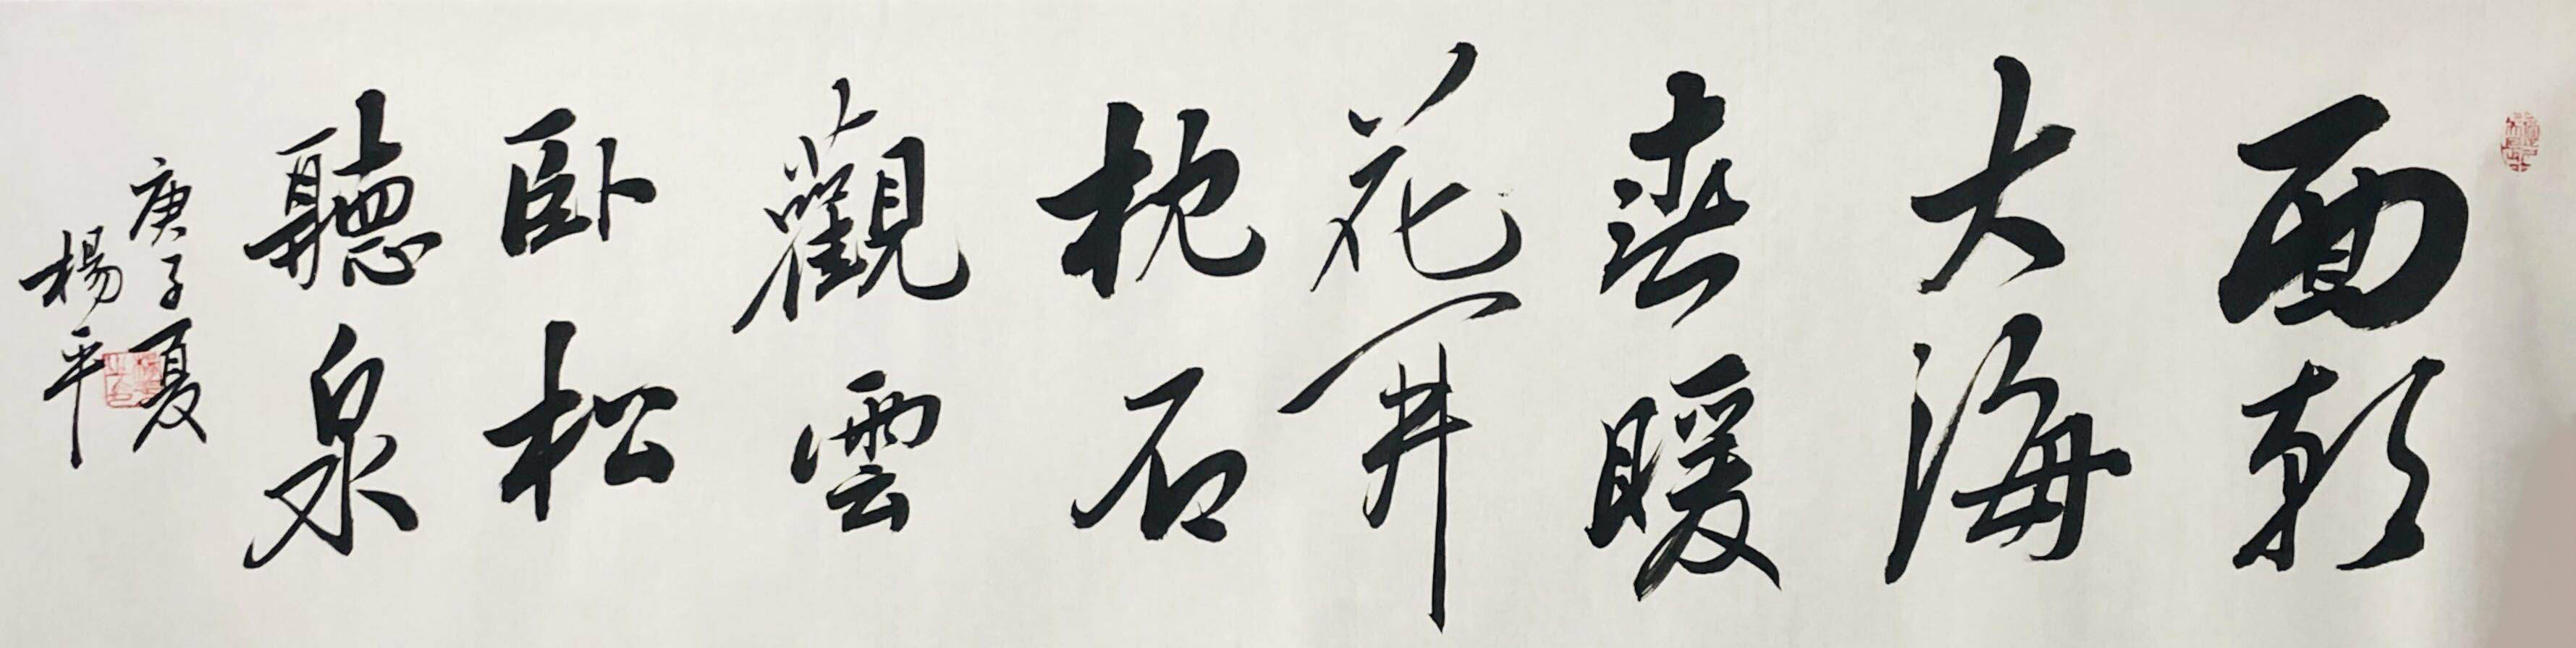 面朝
大海
春暖
花開
枕石
觀雲
臥松
聽泉
庚子夏
楊平